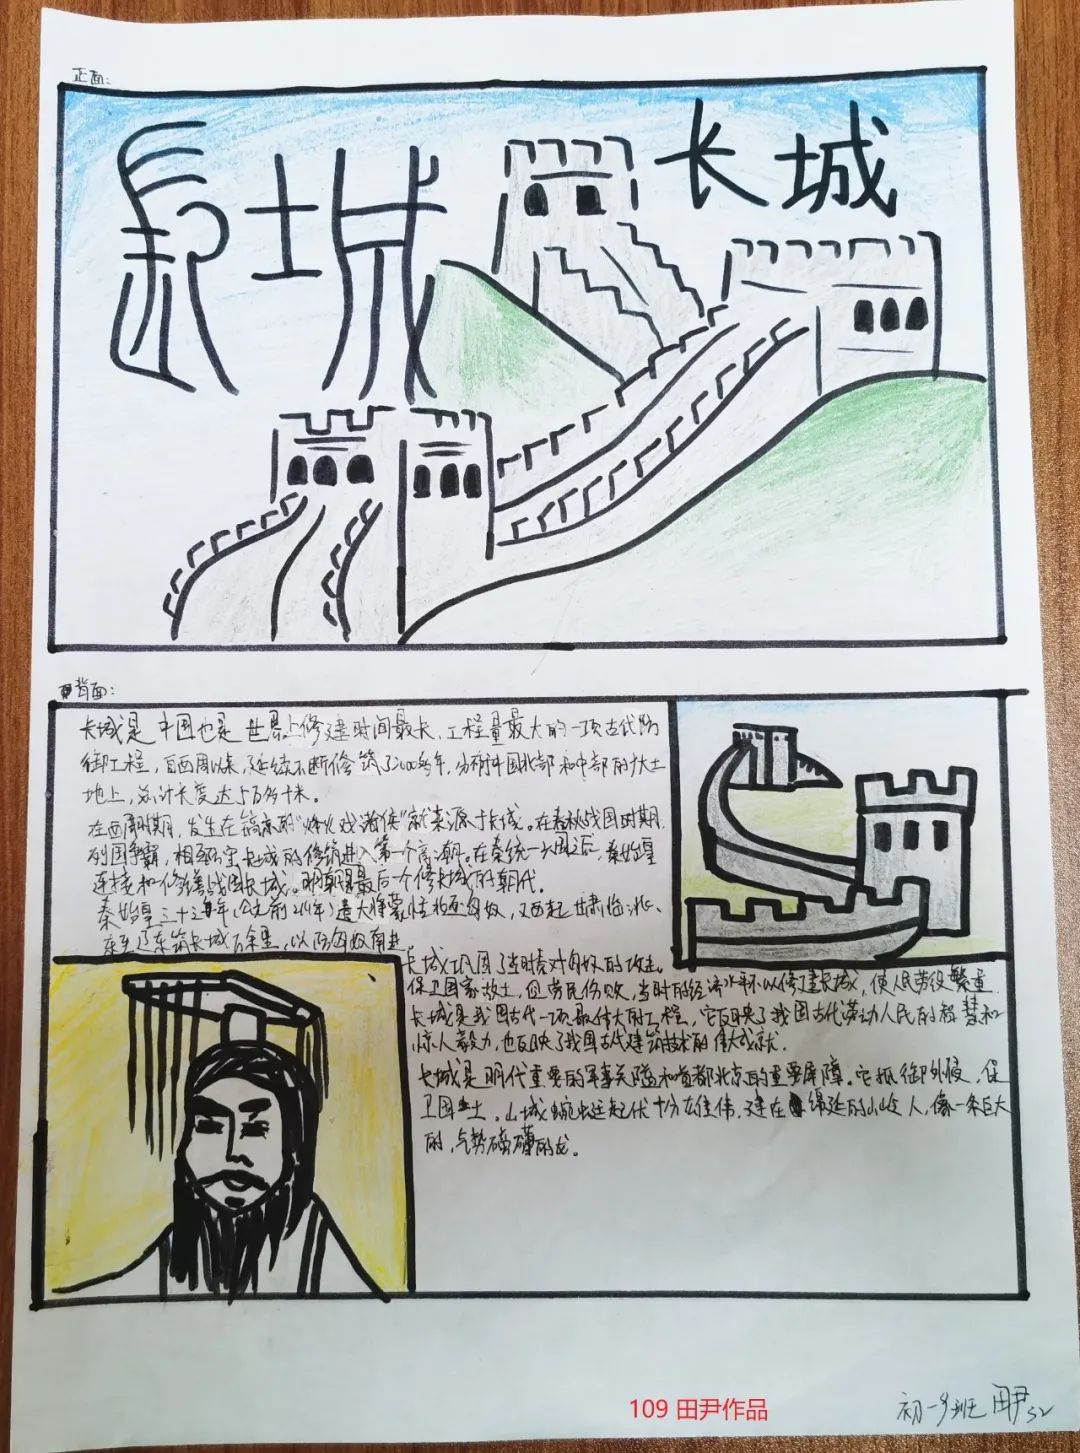 正面:
長城
长城
背面:
长城是中国也是世界上修建时间最长,工程量最大的一项古代防
御工程,自西周以来,延续不断修筑了2000多年,分布中国北部和中部的广大土
地上,总计长度达5万多千米。
在西周时期,发生在镐京的"烽火戏诸侯"就来源于长城。在春秋战国时期
列国争霸,相互防守长城的修筑进入第一个高潮。在秦统一六国之后,秦始皇
连接和修缮战国长城。明朝是最后一个修长城的朝代。
秦始皇三十三年(公元前214年)遣大将蒙恬北逐匈奴,又西起甘肃临洮、
东至辽东筑长城万余里,以防匈奴南进
长城巩固了当时秦对匈奴的攻击。
保卫国家故土,但劳民伤财,当时的经济水平不以修建长城,使人民劳役繁重
长城是我国古代一项最伟大的工程,它反映了我国古代劳动人民的智慧和
惊人毅力,也反映了我国古代建筑技术的伟大成就.
长城是明代重要的军事关隘和首都北京的重要屏障。它抵御外侵,保
卫国土.山城蜿蜒起伏十分左佳伟.建在绵延的山岭人,像一条巨大
的,气势磅礴的龙。
109 田尹作品
初一9班 田尹52